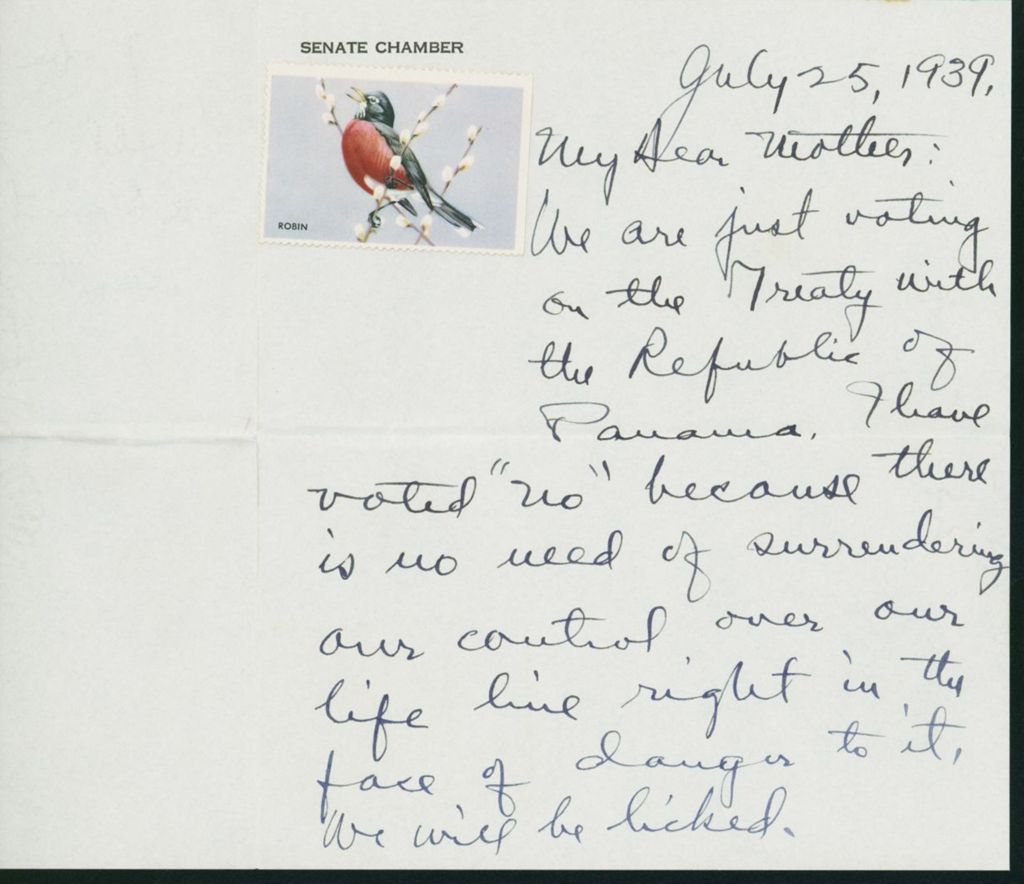 SENATE CHAMBER
July 25, 1939.
ROBIN
My Dear Mother:
We are just voting
on the Treaty with
the Republic of
Panama. I have
voted "no" because there
is no need of surrendering
our control over our
life line right in the
face of danger to it.
We will be licked.